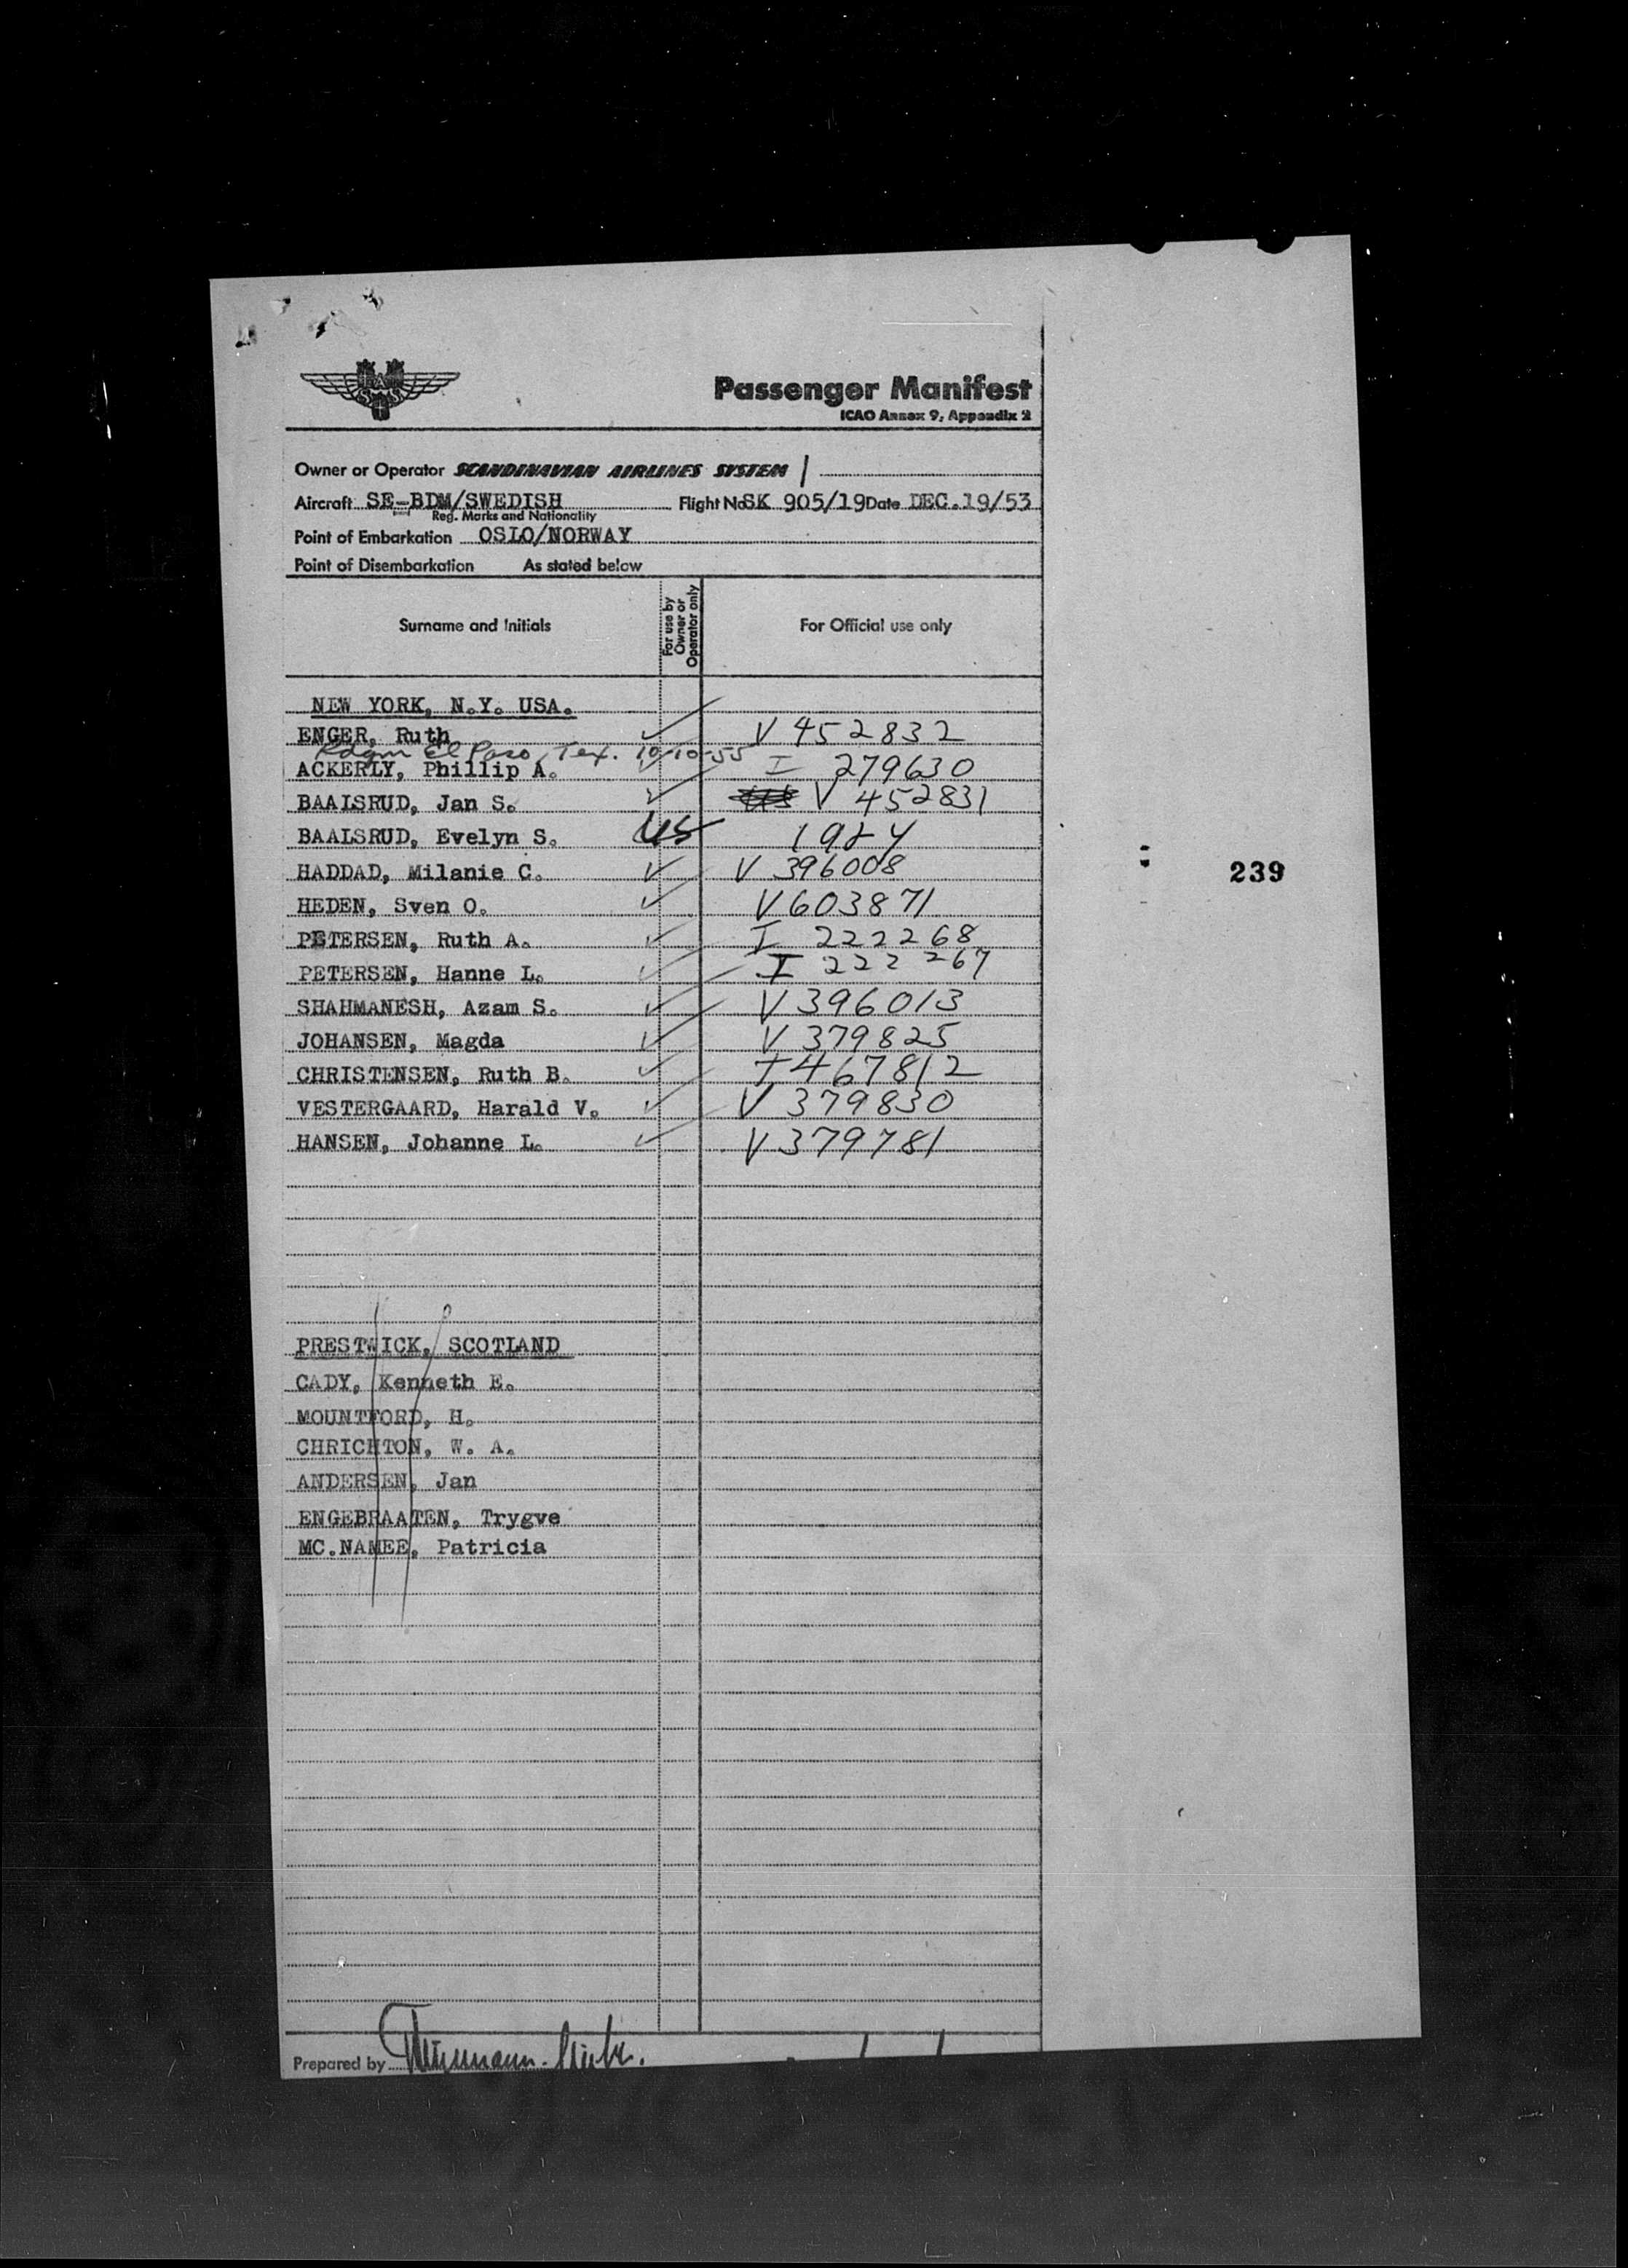 Passenger Manifest
ICAO Annex 9, Appendix 2
Owner or Operator SCANDINAVIAN AIRLINES SYSTEM
Aircraft SE-BDM/SWEDISH Flight No SK 905/19 Date DEC.19/53
Reg. Marks and Nationality
Point of Embarkation OSLO/NORWAY
Point of Disembarkation As stated below
Surname and Initials For use by Owner or Operator only For Official use only
NEW YORK, N.Y. USA.
ENGER, Ruth V 452832
El Paso, Tex. 10-10-55
ACKERLY, Phillip A. I 279630
BAALSRUD, Jan S. V 452831
BAALSRUD, Evelyn S. US
HADDAD, Milanie C. V 396008
239
HEDEN, Sven O. V603871
PETERSEN, Ruth A. I 222268
PETERSEN, Hanne L. I 222267
SHAHMANESH, Azam S. V396013
JOHANSEN, Magda V 379825
CHRISTENSEN, Ruth B. I467812
VESTERGAARD, Harald V. V 379830
HANSEN, Johanne L. V379781
PRESTWICK, SCOTLAND
CADY, Kenneth E.
MOUNTFORD, H.
CHRICHTON, W. A.
ANDERSEN, Jan
ENGEBRAATEN, Trygve
MC.NAMEE, Patricia
Prepared by